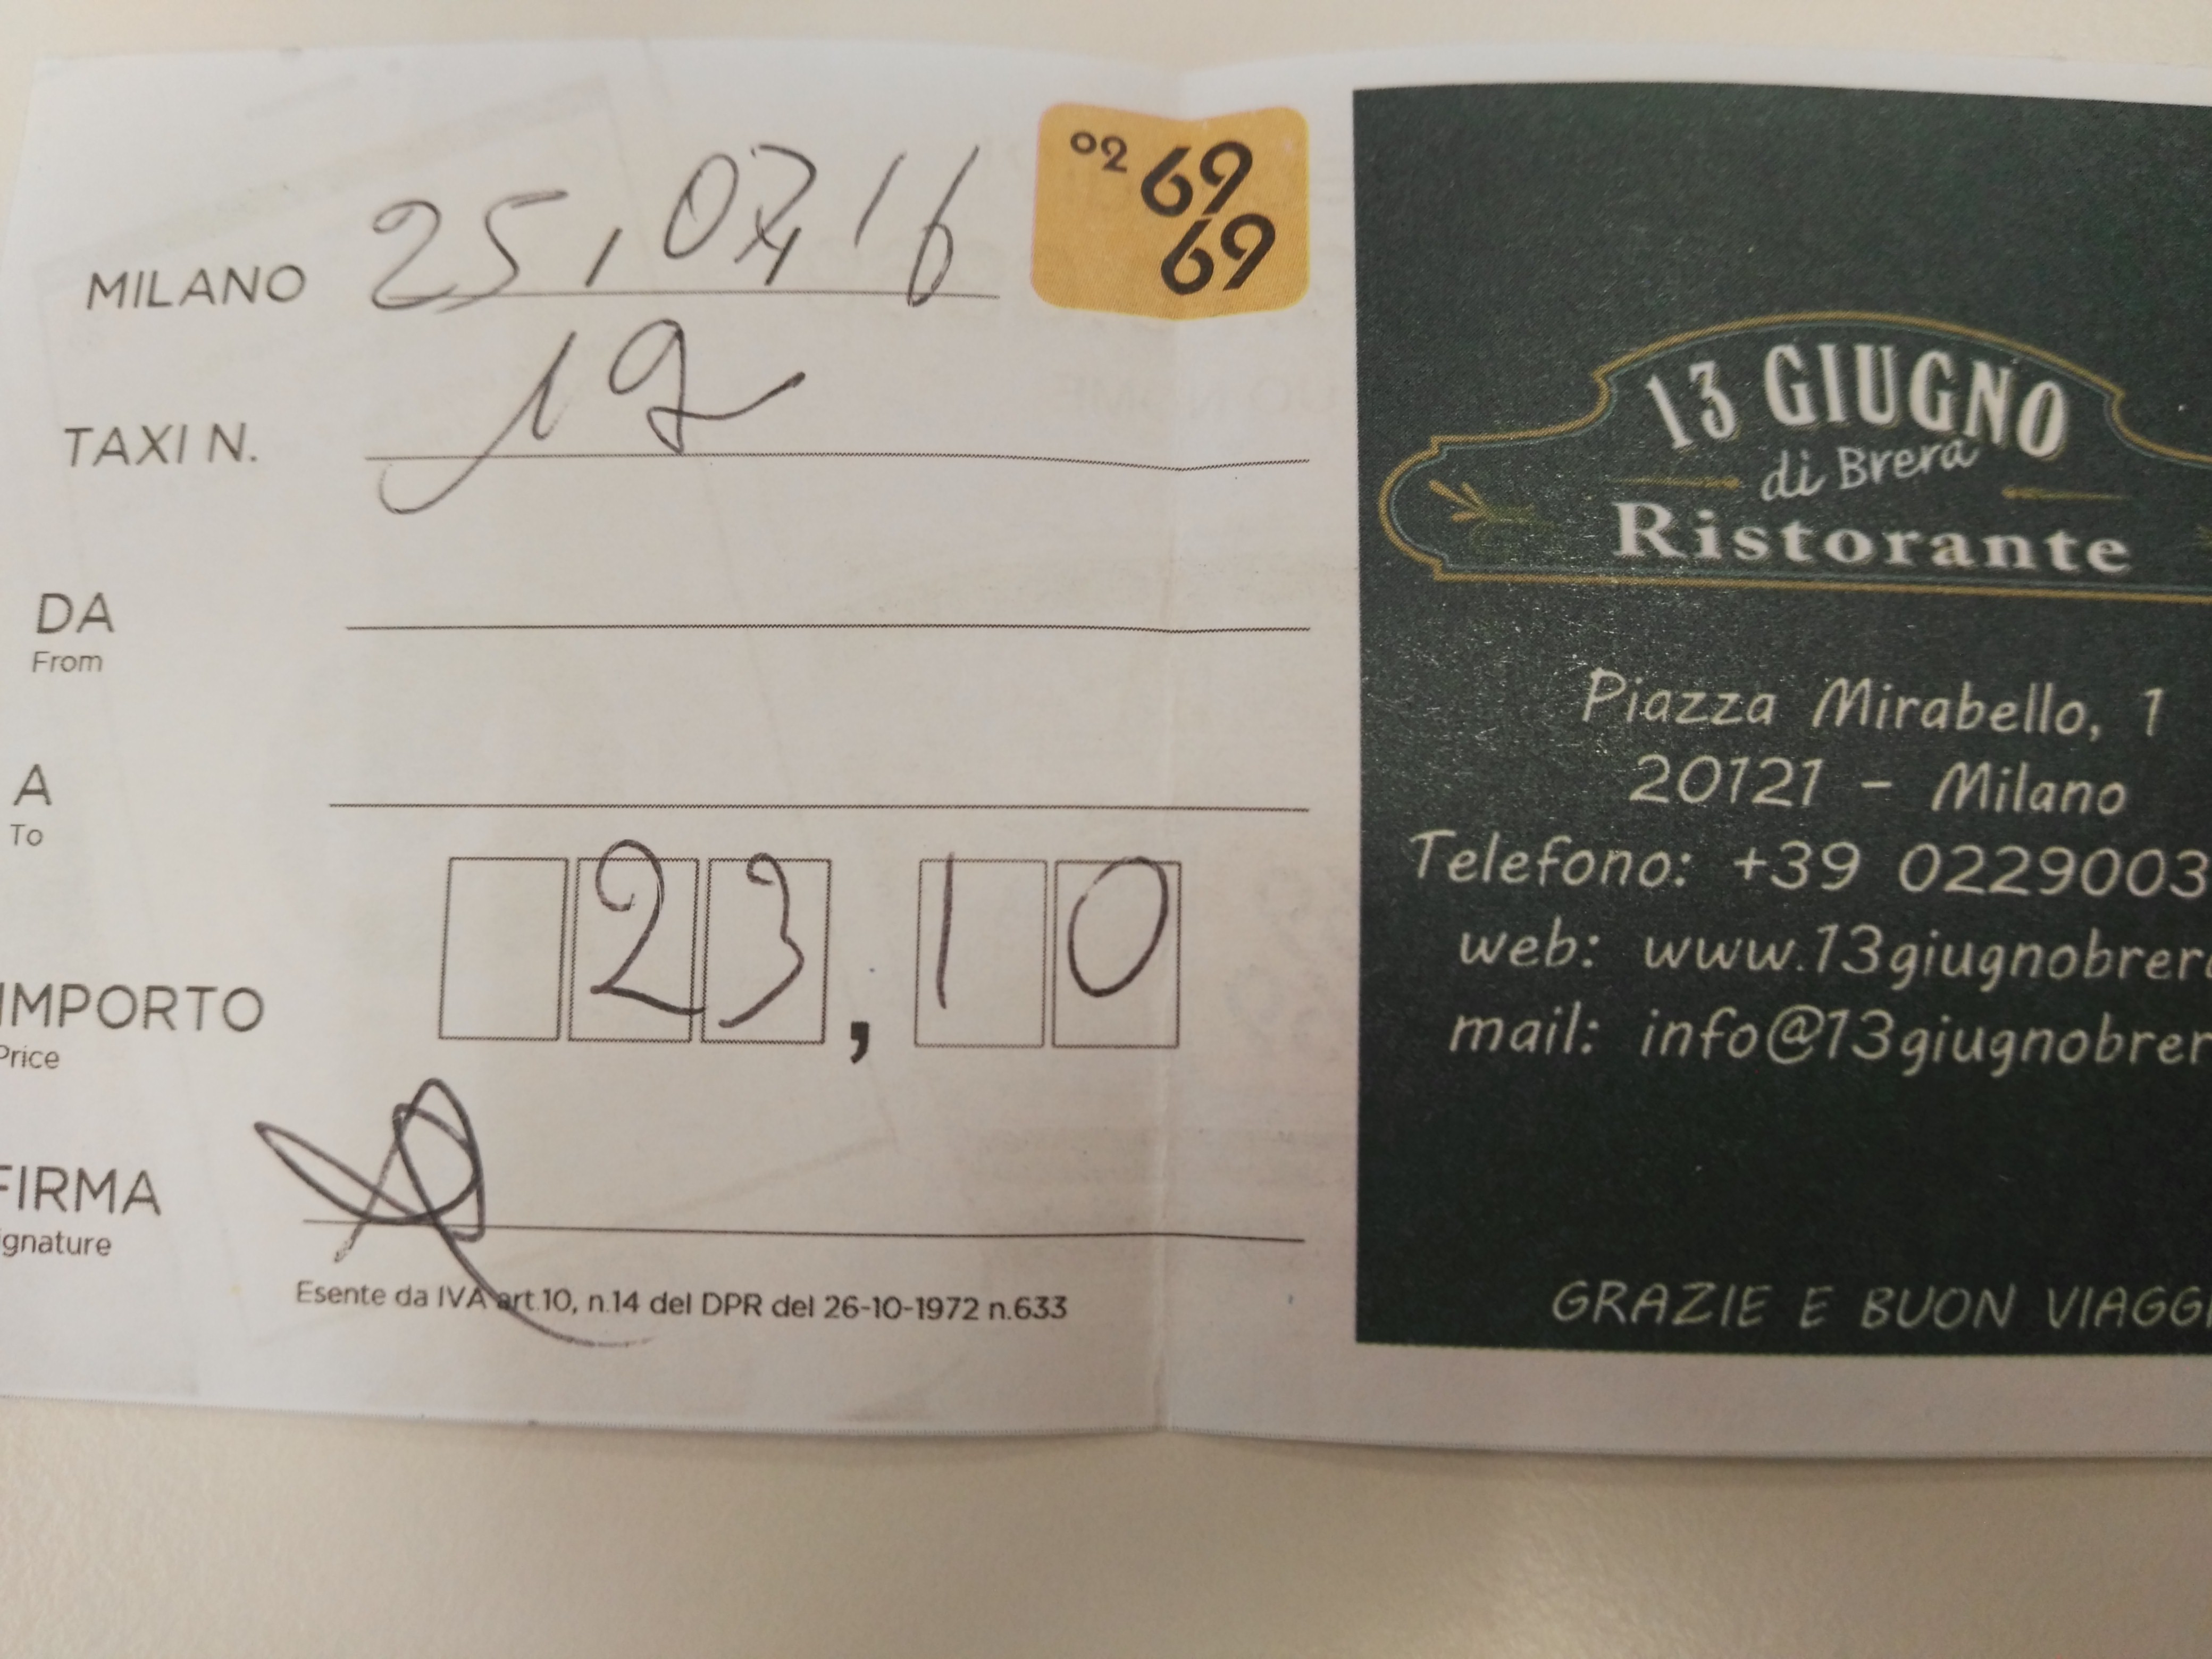 MILANO 25,07,16
02 69
69
TAXI N. 19
DA
From
A
To
IMPORTO 23,10
Price
FIRMA
ignature
Esente da IVA art.10, n.14 del DPR del 26-10-1972 n.633
13 GIUGNO
di Brera
Ristorante
Piazza Mirabello, 1
20121 - Milano
Telefono: +39 0229003
web: www.13giugnobrer
mail: info@13giugnobrer
GRAZIE E BUON VIAGG